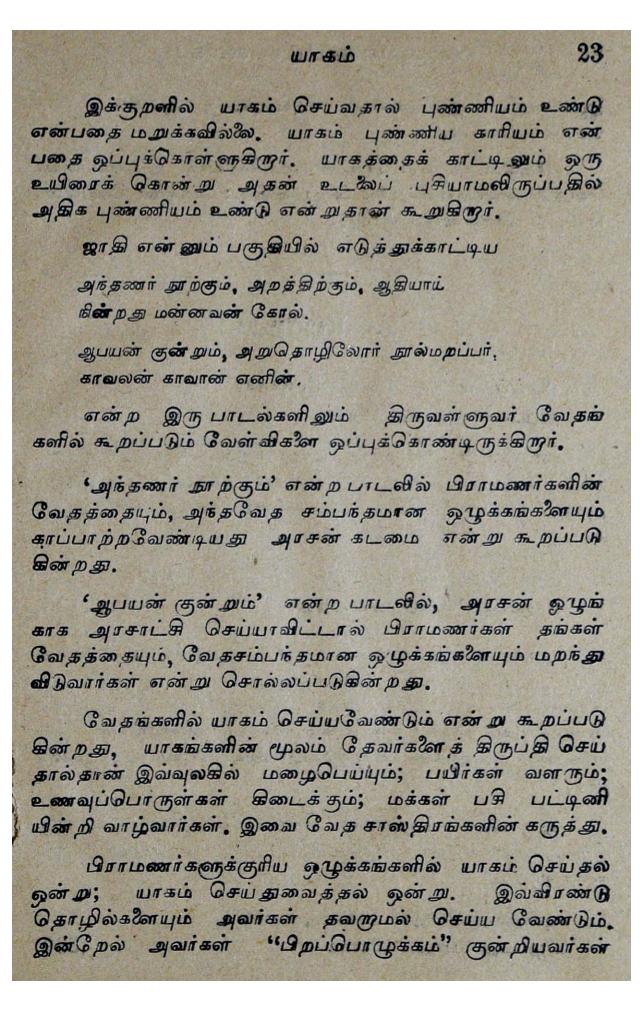 யாகம் 23
இக்குறளில் யாகம் செய்வதால் புண்ணியம் உண்டு
என்பதை மறுக்கவில்லை. யாகம் புண்ணிய காரியம் என்
பதை ஒப்புக்கொள்ளுகிறார். யாகத்தைக் காட்டிலும் ஒரு
உயிரைக் கொன்று அதன் உடலைப் புசியாமலிருப்பதில்
அதிக புண்ணியம் உண்டு என்றுதான் கூறுகிறார்.
ஜாதி என்னும் பகுதியில் எடுத்துக்காட்டிய
அந்தணர் நூற்கும், அறத்திற்கும், ஆதியாய்
நின்றது மன்னவன் கோல்.
ஆபயன் குன்றும், அறுதொழிலோர் நூல்மறப்பர்,
காவலன் காவான் எனின்.
என்ற இரு பாடல்களிலும் திருவள்ளுவர் வேதங்
களில் கூறப்படும் வேள்விகளை ஒப்புக்கொண்டிருக்கிறார்.
‘அந்தணர் நூற்கும்’ என்ற பாடலில் பிராமணர்களின்
வேதத்தையும், அந்தவேத சம்பந்தமான ஒழுக்கங்களையும்
காப்பாற்றவேண்டியது அரசன் கடமை என்று கூறப்படு
கின்றது.
‘ஆபயன் குன்றும்’ என்ற பாடலில், அரசன் ஒழுங்
காக அரசாட்சி செய்யாவிட்டால் பிராமணர்கள் தங்கள்
வேதத்தையும், வேதசம்பந்தமான ஒழுக்கங்களையும் மறந்து
விடுவார்கள் என்று சொல்லப்படுகின்றது.
வேதங்களில் யாகம் செய்யவேண்டும் என்று கூறப்படு
கின்றது, யாகங்களின் மூலம் தேவர்களைத் திருப்தி செய்
தால்தான் இவ்வுலகில் மழைபெய்யும்; பயிர்கள் வளரும்;
உணவுப்பொருள்கள் கிடைக்கும்; மக்கள் பசி பட்டினி
யின்றி வாழ்வார்கள். இவை வேத சாஸ்திரங்களின் கருத்து.
பிராமணர்களுக்குரிய ஒழுக்கங்களில் யாகம் செய்தல்
ஒன்று; யாகம் செய்துவைத்தல் ஒன்று. இவ்விரண்டு
தொழில்களையும் அவர்கள் தவறாமல் செய்ய வேண்டும்.
இன்றேல் அவர்கள் “பிறப்பொழுக்கம்” குன்றியவர்கள்